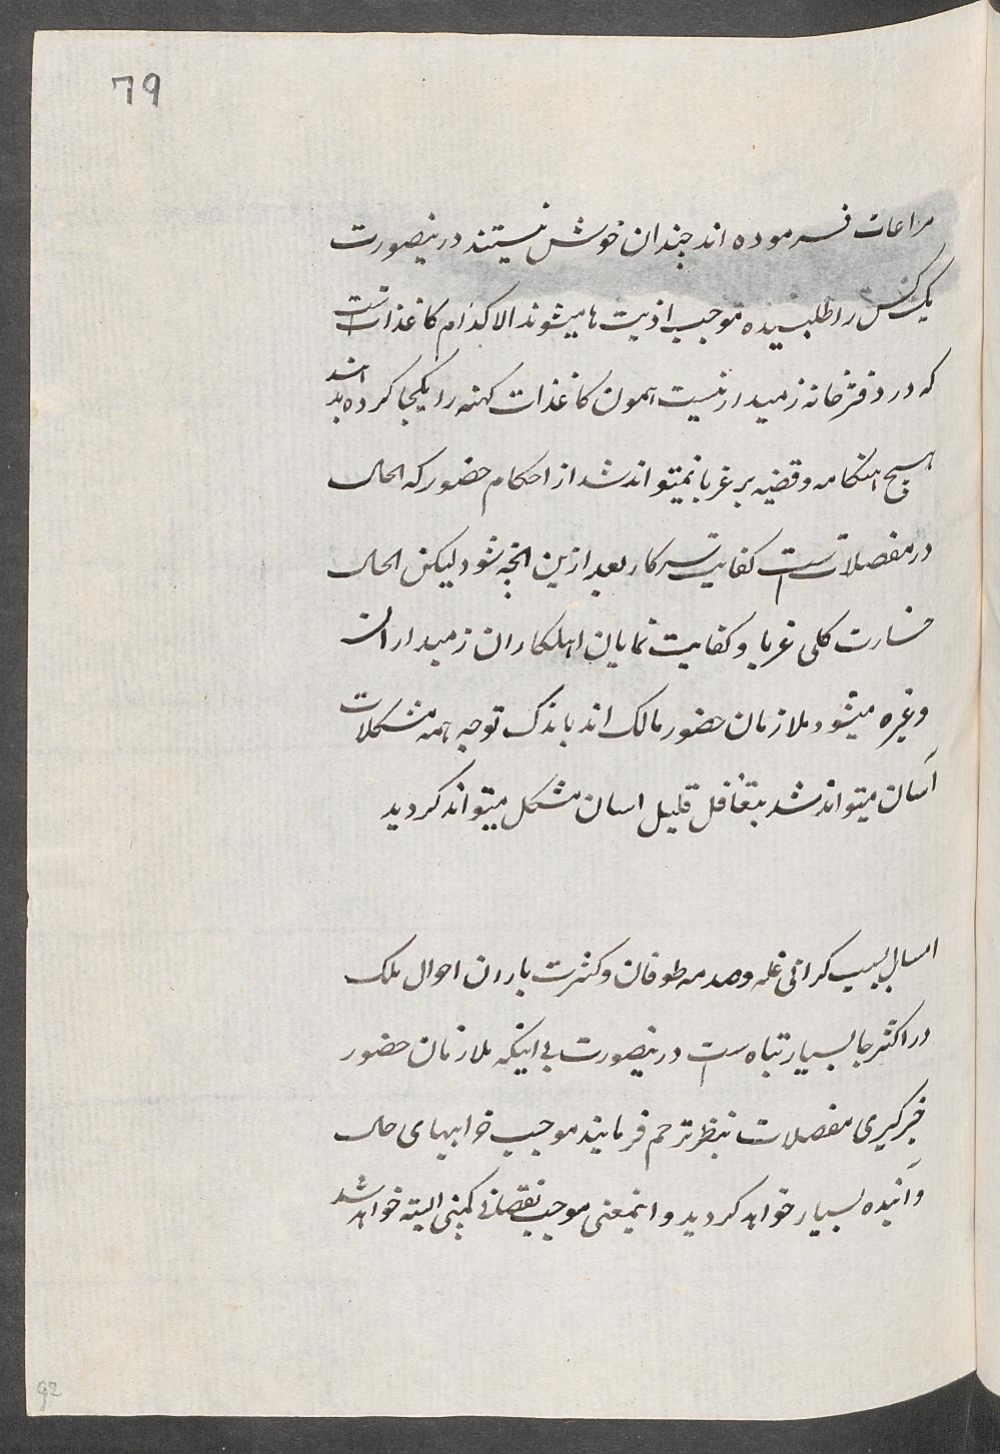 79
مراعات فرموده اند چندان خوش نیستند درینصورت
یک کس را طلبیده موجب اذیت ها میشوند الا کدام کاغذات است
که در دفترخانه زمیندار نیست همون کاغذات کهنه را یکجا کرده باشد
هیچ هنکامه و قضیه بر غربا نمیتواند شد از احکام حضور که الحال
در مفصلات است کفایت سرکار بعد ازین انچه شود لیکن الحال
خسارت کلی غربا و کفایت نمایان اهلکاران زمینداران
وغیره میشود ملازمان حضور مالک اند باندک توجه همه مشکلات
آسان میتواند شد بتغافل قلیل اسان مشکل میتواند کردید
امسال بسبب کرانی غله و صدمه طوفان و کثرت باران احوال ملک
در اکثر جا بسیار تباه ست درینصورت بی اینکه ملازمان حضور
خبرکیری مفصلات بنظر ترحم فرمایند موجب خرابیهای حال
و آینده بسیار خواهد کردید و اینمعنی موجب نقصانی کمپنی البته خواهد شد
92